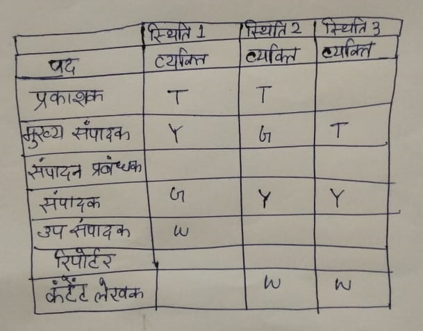 स्थिति 1 स्थिति 2 स्थिति 3
पद व्यक्ति व्यक्ति व्यक्ति
प्रकाशक T T
मुख्य संपादक Y G T
संपादन प्रबंधक
संपादक G Y Y
उप संपादक W
रिपोर्टर
कंटेंट लेखक W W